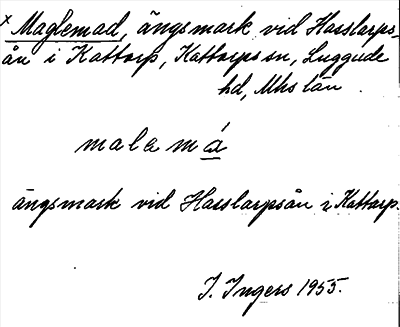 x Maglemad, ängsmark vid Hasslarps-
ån i Kattarp, Kattarps sn, Luggude
hd, Mhs län
malamá
ängsmark vid Hasslarpsån i Kattarp.
I. Ingers 1955.